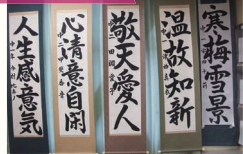 寒梅雪景
温故知新
敬天愛人
心清意自閑
人生感意気